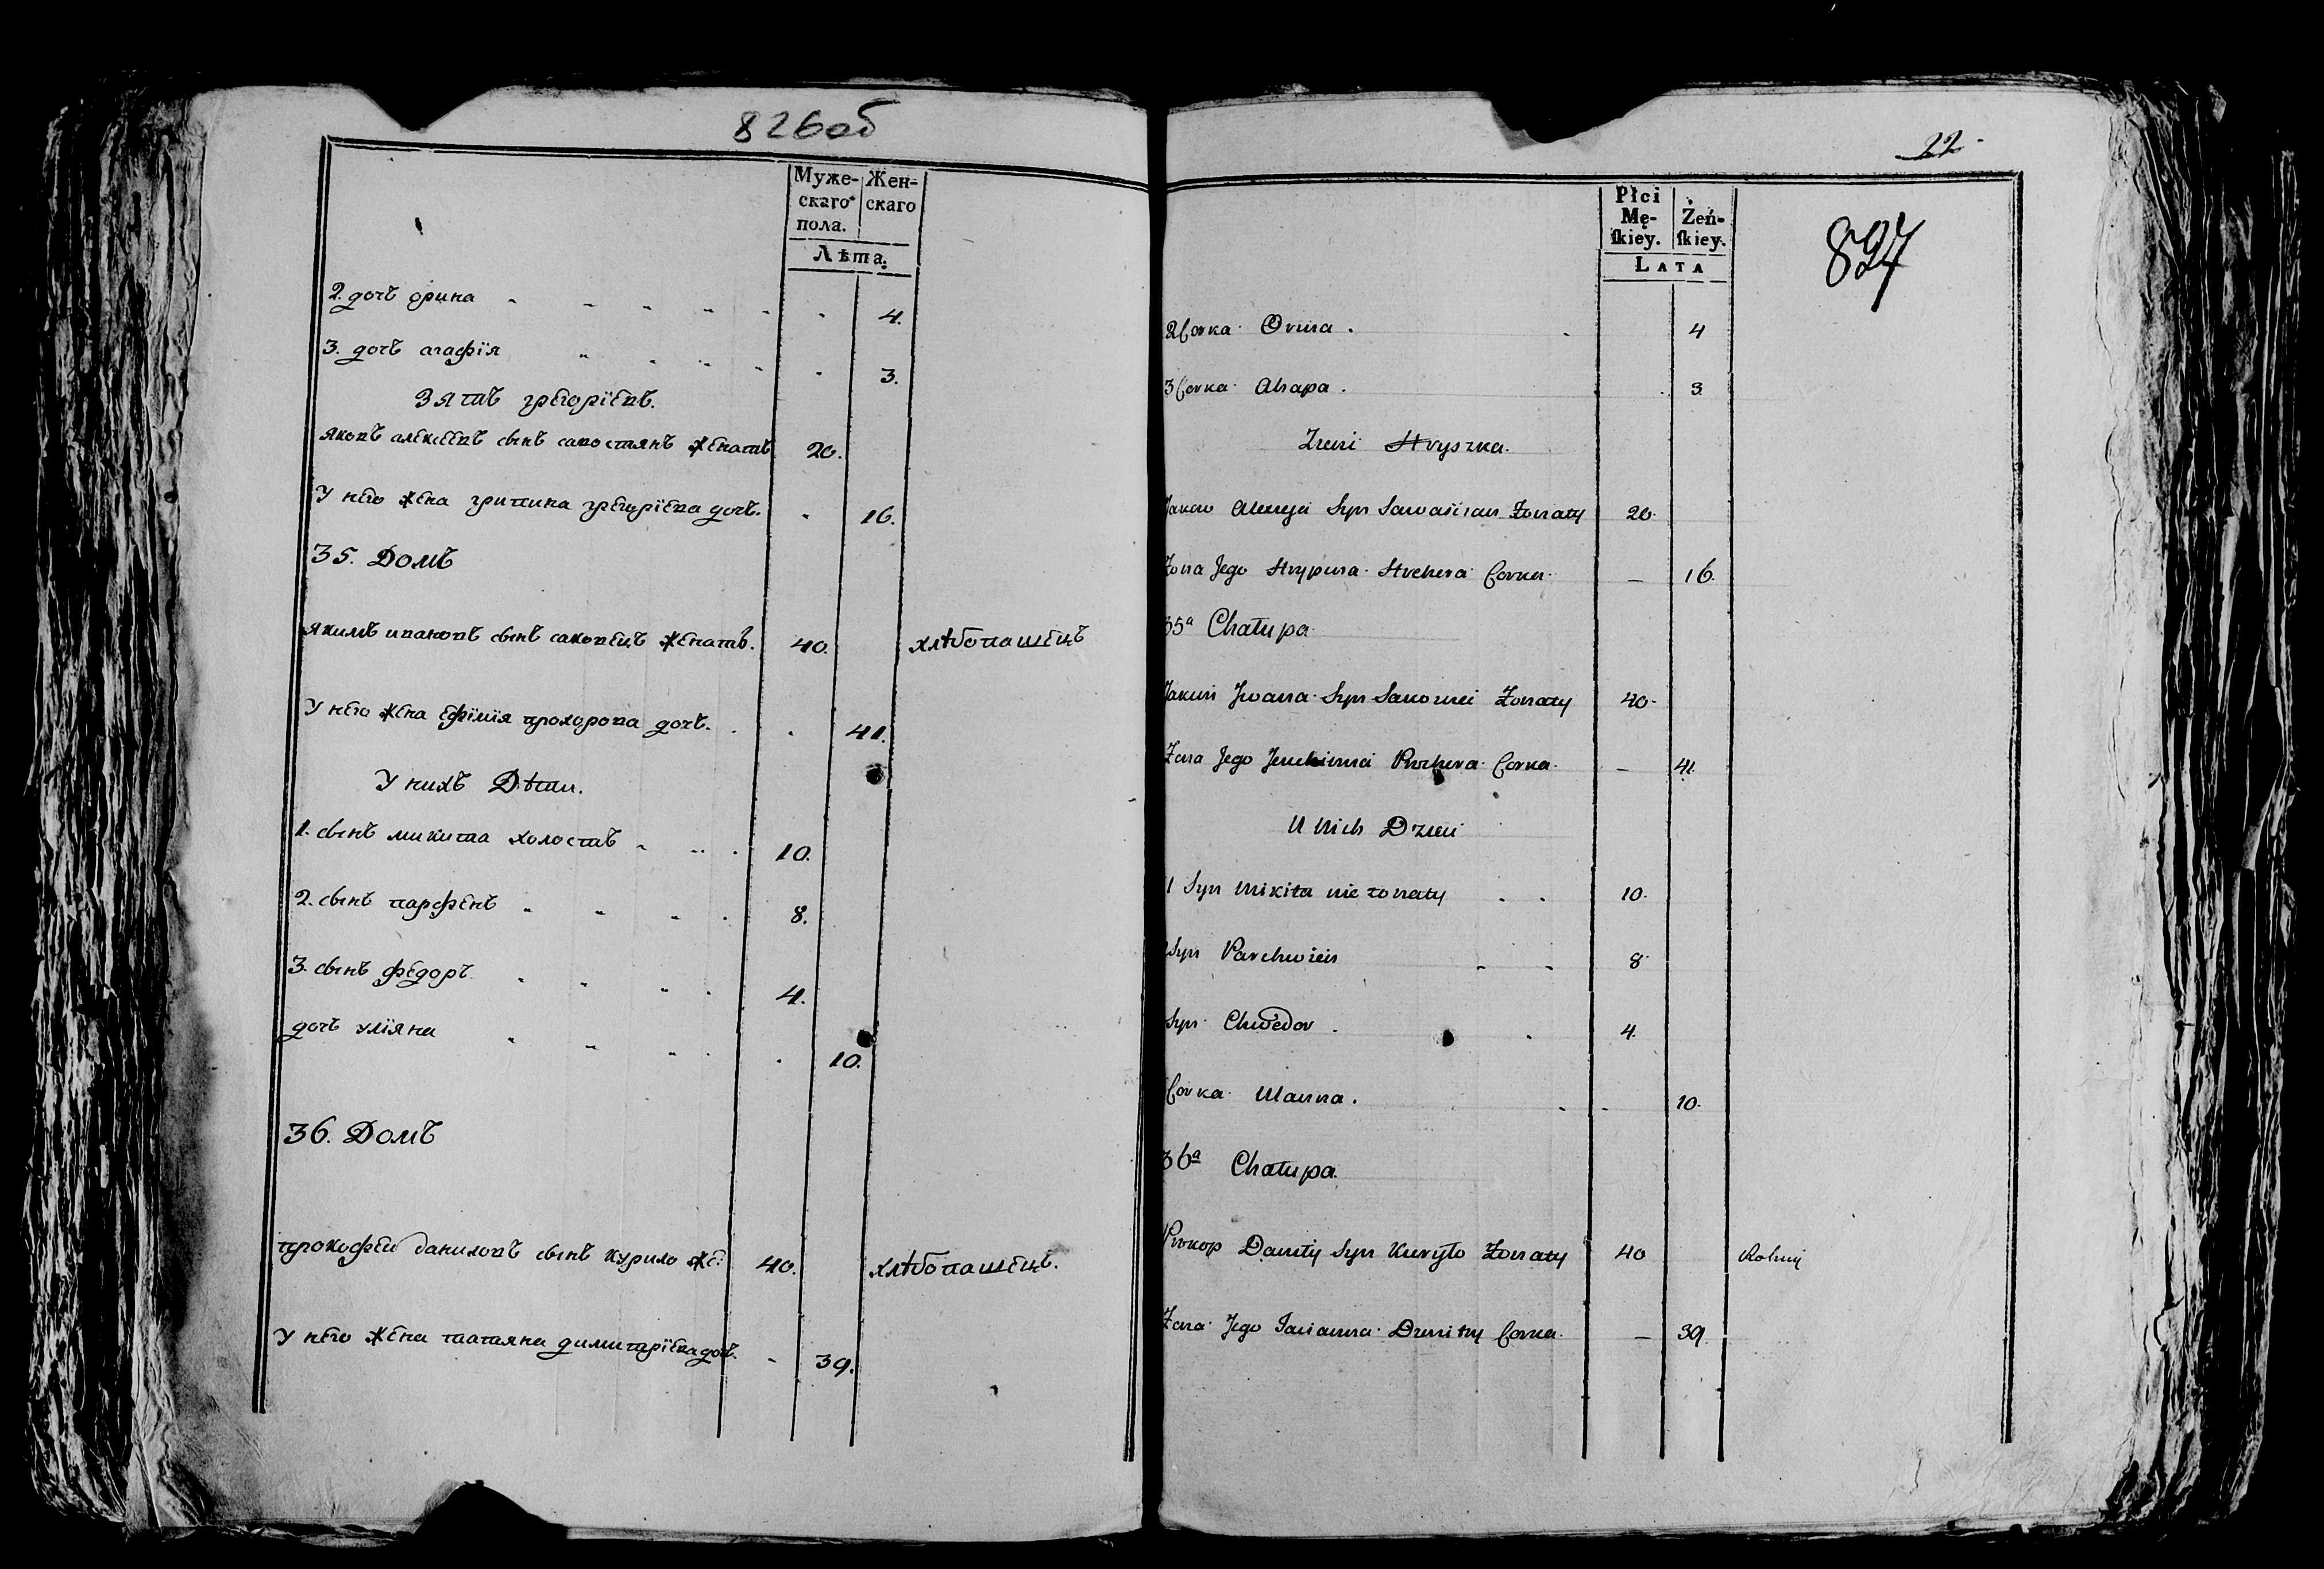 826об
Муже-
скаго
пола.
Жен-
скаго
Лѣта.
2. дочь орина 4.
3. дочь агафїя 3.
Зять григорїевъ.
яковъ алексеевъ сынъ женатъ 20.
У него жена григорїева дочь. 16.
35. Домъ
якимъ ивановъ сынъ саковецъ женатъ. 40. хлѣбопашецъ
У него жена ефїмїя прохорова дочь. 41.
У нихъ Дѣти.
1. сынъ микита холостъ 10.
2. сынъ парфенъ 8.
3. сынъ федоръ 4.
дочь улїяна 10.
36. Домъ
прокофей даниловъ сынъ курило же: 40. хлѣбопашецъ.
У него жена татяна димитрїева дочь. 39.
22
827
Płci
Mę-
skiey.
Żeń-
skiey.
LATA
2 Corka Orina. 4
3 Corka Ahapa. 3
Hryszka.
Jakow Syn Żonaty 20
Żona Jego Hrypina Corka 16.
35a Chałupa
Jakim Iwana Syn Żonaty 40
Żona Jego Prochora Corka 41.
U Nich Dzieci
1 Syn Mikita nie żonaty 10.
Syn Parchwien 8
Syn Chwedor 4.
Corka Ulanna. 10.
36a Chałupa.
Prokop Daniły Syn Kuryło Żonaty 40 Rolnij
Żona Jego Tacianna Dmitry Corka. 39.